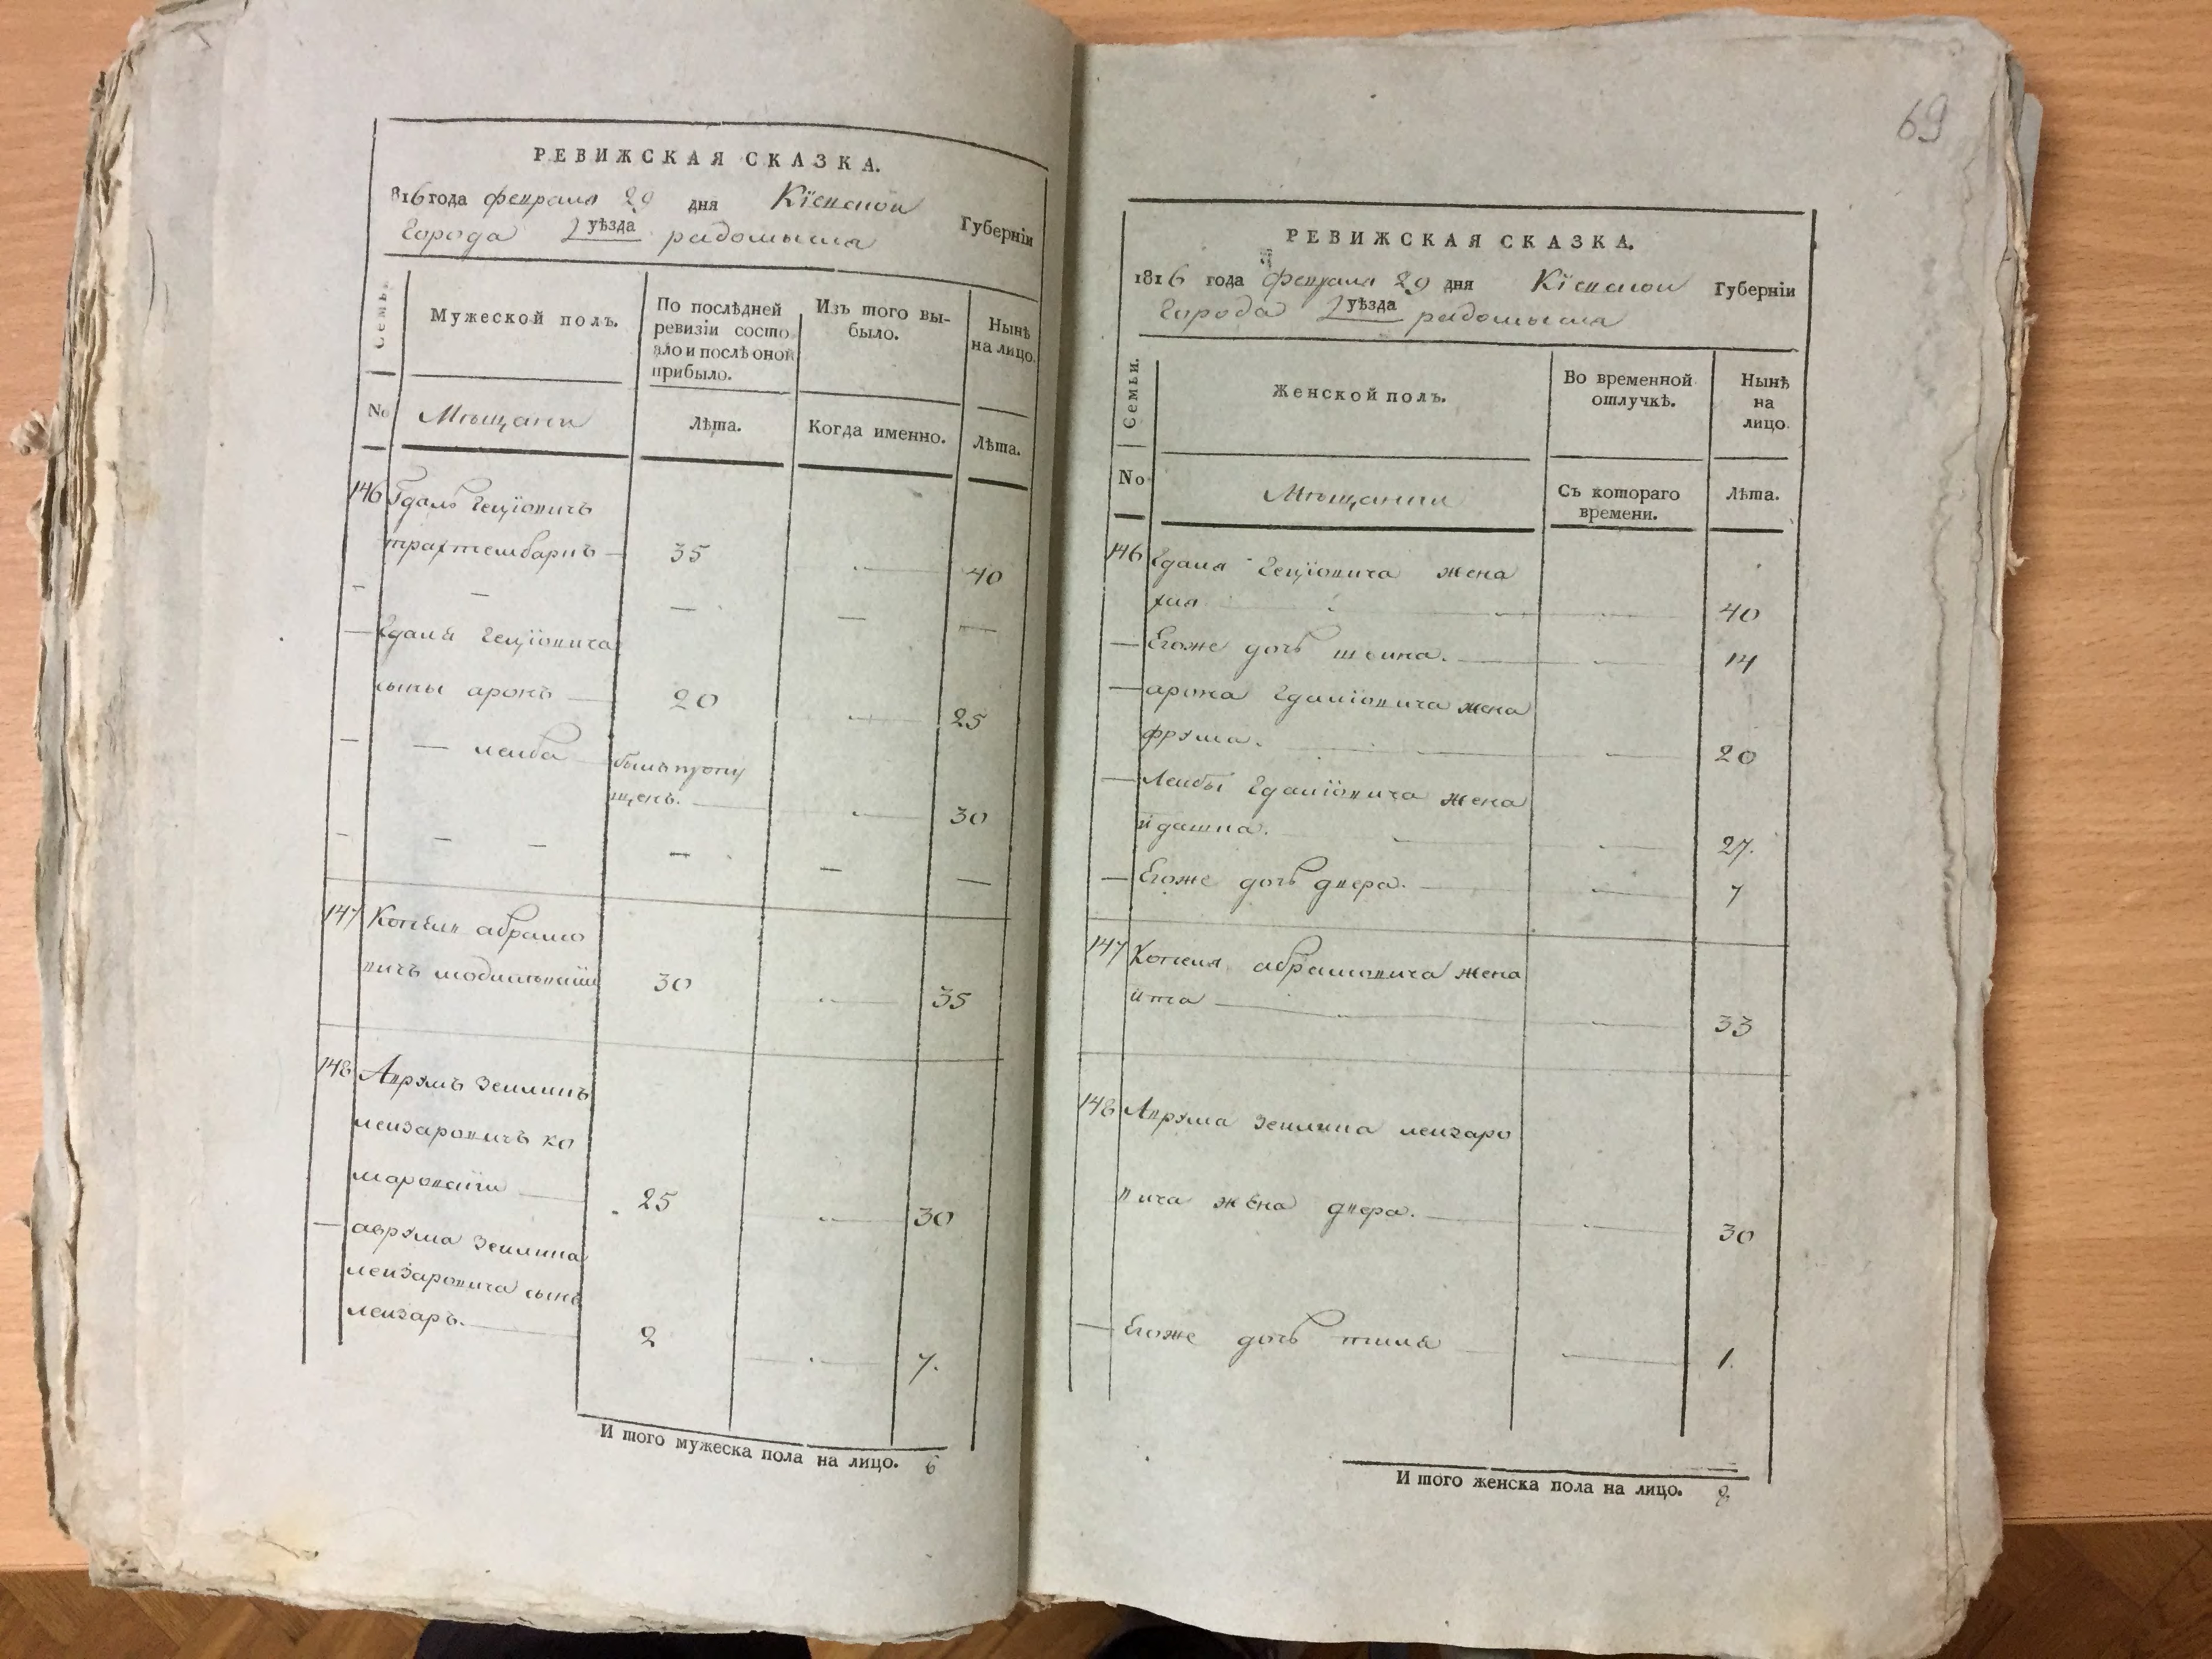 РЕВИЖСКАЯ СКАЗКА.
816 года февраля 29 дня Кіевской Губерніи
Города уѣзда радомысля
Семьи.
Мужеской полъ.
По послѣдней ревизіи состо
яло и послѣ оной прибыло.
Изъ того вы-
было.
Нынѣ
на лицо.
No
Мѣщани
Лѣта.
Когда именно.
Лѣта.
146 Гдаль Гецїовичъ
трахтембарнъ — 35 — 40
— — — — —
— Гдаля Гецїовича
сыны аронъ — 20 — 25
— — леиба былъ пропу
щенъ. — 30
— — — — — —
147 Котеля абрамо
вичъ 30 — 35
148 Аврумъ Зеилинъ
леизаровичъ ко
маровскїи — 25 — 30
— аврума Зеилина
леизаровича сынъ
леизаръ. — 2 — 7.
И того мужеска пола на лицо. 6
69
РЕВИЖСКАЯ СКАЗКА.
1816 года февраля 29 дня Кіевской Губерніи
Города уѣзда радомысля
Семьи.
Женской полъ.
Во временной
отлучкѣ.
Нынѣ
на
лицо.
No
Мѣщанки
Съ котораго
времени.
Лѣта.
146 Гдаля Гецїовича жена
хая — 40
— Егоже дочь шеина. — 14
— арона Гдалїовича жена
фрума. — 20
— Леибы Гдалїовича жена
идашна. — 27.
— Егоже дочь двера. — 7
147 Котеля абрамовича жена
ита — 33
148 Аврума Зеилина леизаро
вича жена двера. — 30
— Егоже дочь тиля — 1.
И того женска пола на лицо. 8